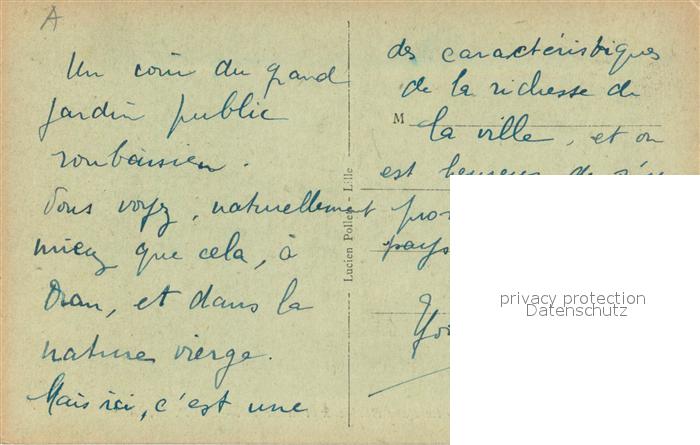 A
Un coin du grand
jardin public
roubaisien.
Vous voyez, naturellement
mieux que cela, à
Oran, et dans la
nature vierge.
Mais ici, c'est une
des caractéristiques
de la richesse de
M
la ville, et on
est heureux de
pays
Lucien Pollet - Lille
privacy protection
Datenschutz